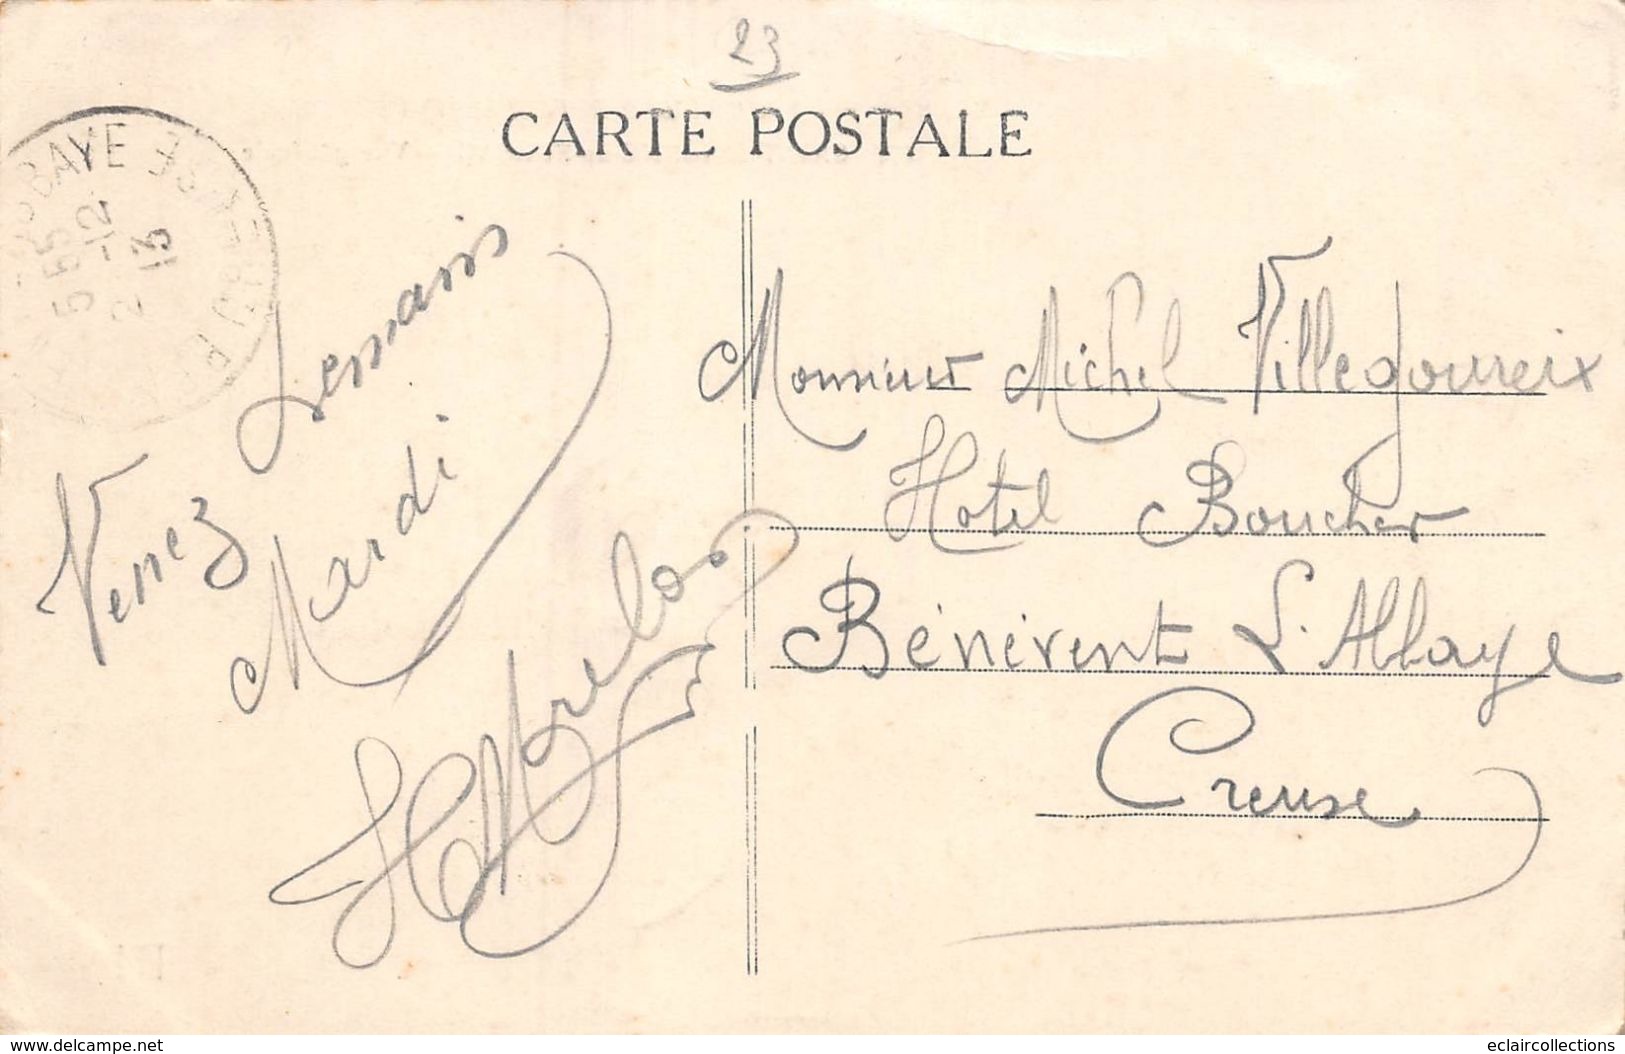 23
CARTE POSTALE
BAYE
5 55
2 -12
13
Venez
Mardi
Monsieur Michel Villegoureix
Hotel Boucher
Bénévent L'Abbaye
Creuse
www.delcampe.net
eclaircollections